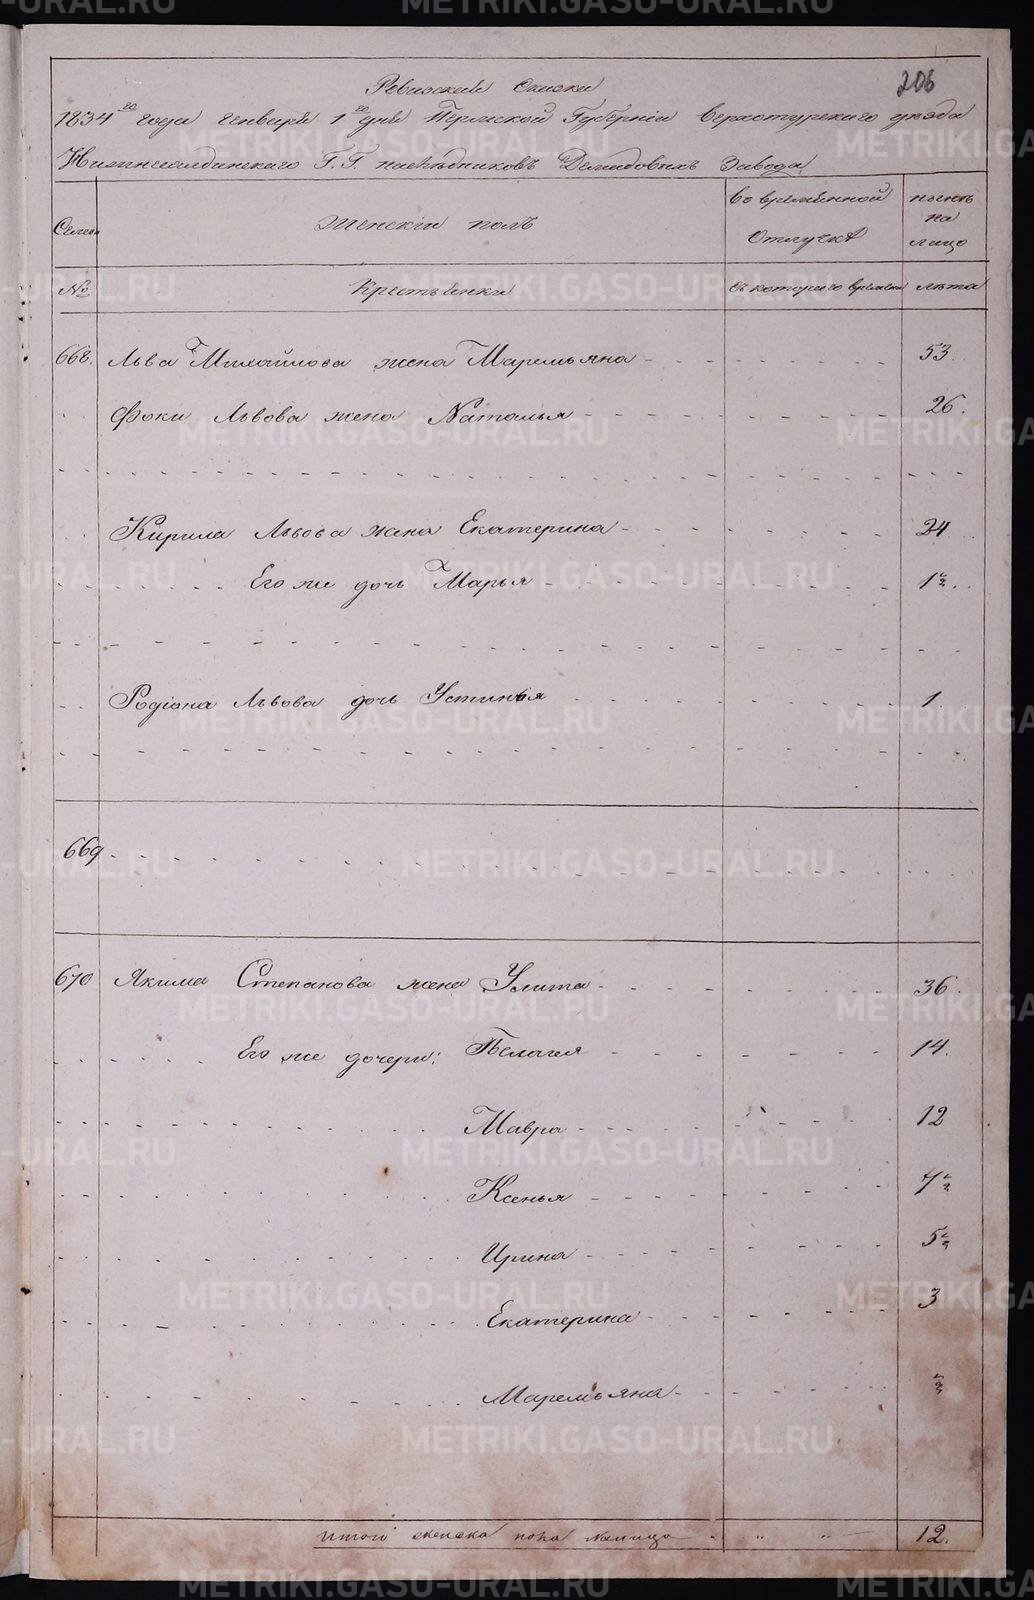 206
Ревизския Сказки
1834го года Генваря 1го дня Пермской Губернии Верхотурского уезда
Нижнесалдинского Г.Г. наследниковъ Демидовыхъ Завода
Семьи
Женскiй полъ
Во временной Отлучке
ныне на лицо
№
Крестьянки
съ которого времени
лета
668. Льва Михайлова жена Маремьяна 53.
Фоки Львова жена Наталья 26.
Кирила Львова жена Екатерина 24
Его же дочь Марья 1½.
Родiона Львова дочь Устинья 1
669
670 Якима Степанова жена Улита 36.
Его же дочери: Пелагея 14.
Мавра 12
Ксенья 7½
Ирина 5½
Екатерина 3
Маремьяна ½
Итого женска пола налицо " " " 12.
METRIKI.GASO-URAL.RU